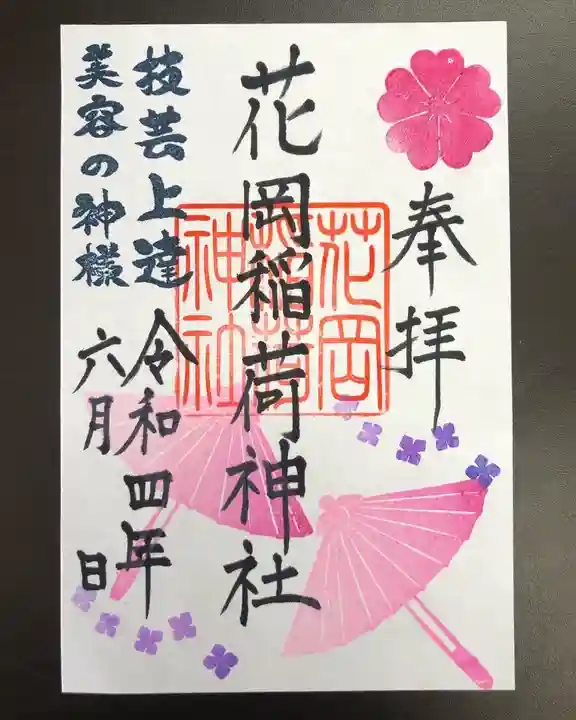 奉拝
花岡稲荷神社
花岡稲荷神社
令和四年
六月 日
技芸上達
美容の神様